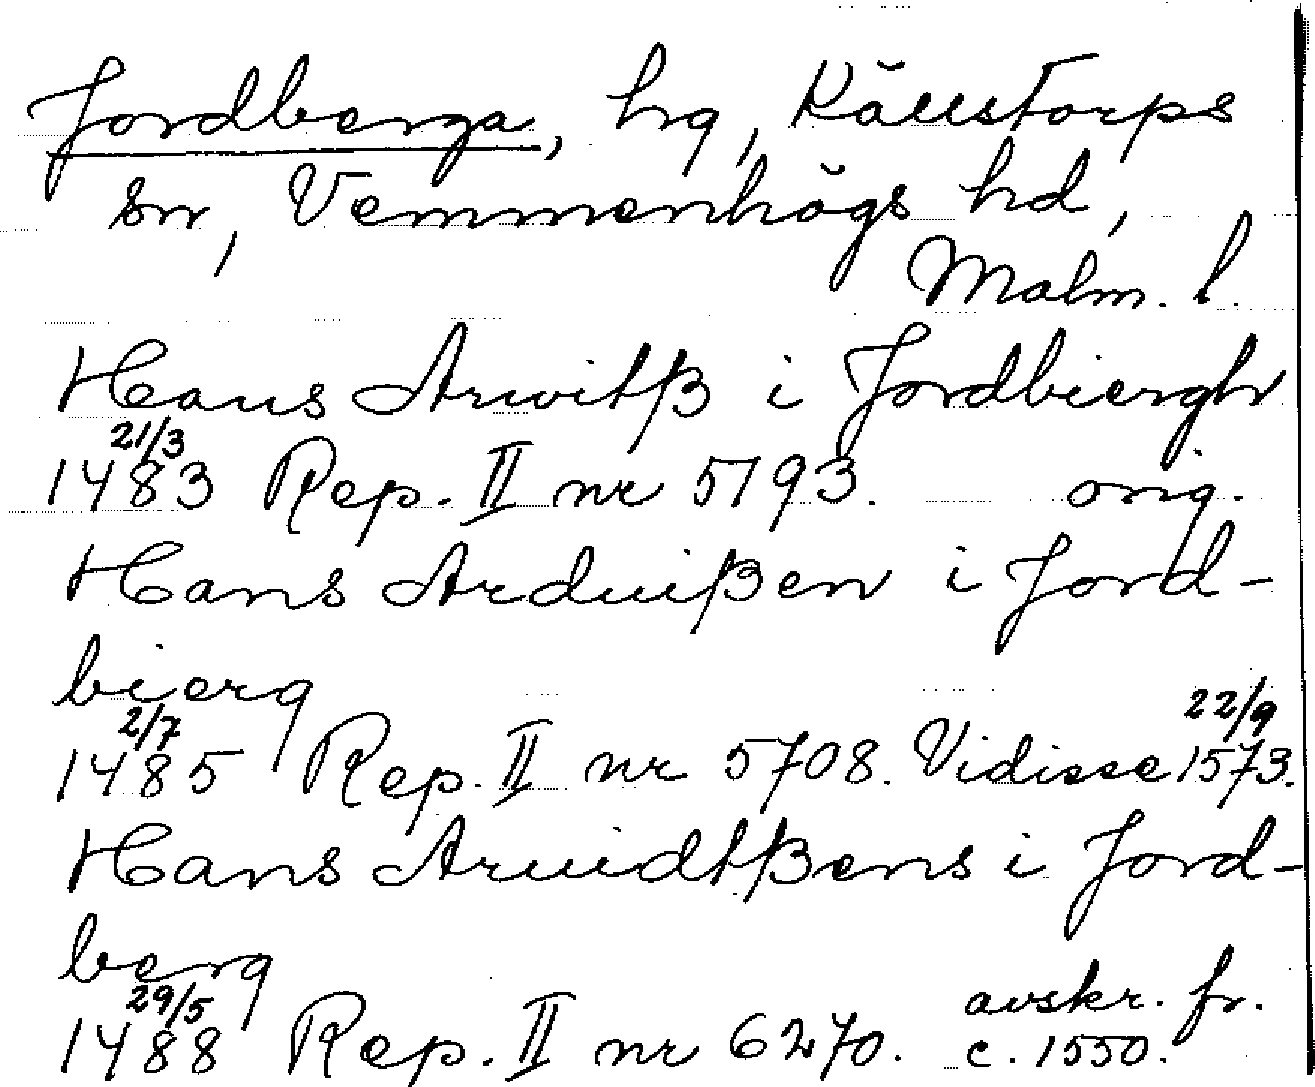 Jordberga, hg, Källstorps
sn, Vemmenhögs hd,
Malm. l.
Hans Arwitß i Jordbiergh
21/3
1483 Rep. II nr 5193. orig.
Hans Arduißen i Jord-
bierg
2/7 22/9
1485 Rep. II nr 5708. Vidisse 1573.
Hans Aruidtßens i Jord-
berg
29/5 avskr. fr.
1488 Rep. II nr 6270. c. 1550.